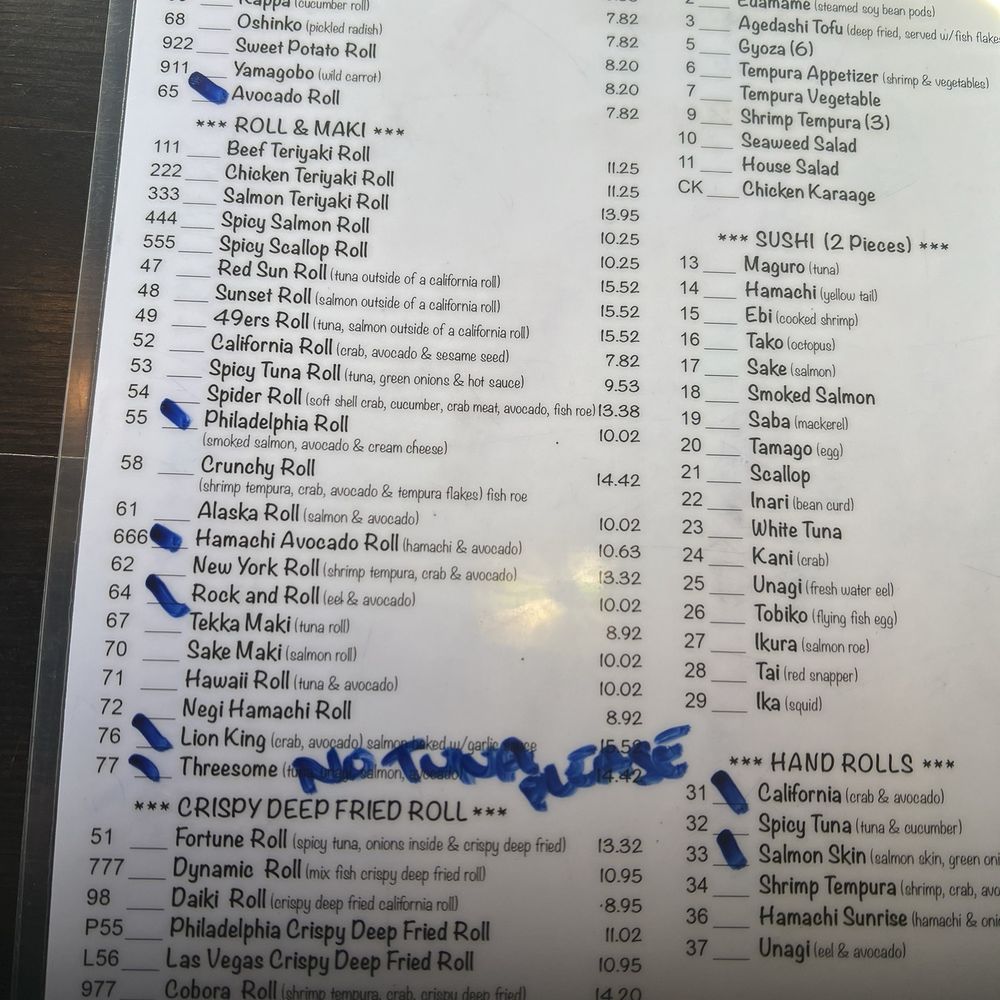 Kappa (cucumber roll) 7.82
68 Oshinko (pickled radish) 7.82
922 Sweet Potato Roll 8.20
911 Yamagobo (wild carrot) 8.20
65 Avocado Roll 7.82
*** ROLL & MAKI ***
111 Beef Teriyaki Roll 11.25
222 Chicken Teriyaki Roll 11.25
333 Salmon Teriyaki Roll 13.95
444 Spicy Salmon Roll 10.25
555 Spicy Scallop Roll 10.25
47 Red Sun Roll (tuna outside of a california roll) 15.52
48 Sunset Roll (salmon outside of a california roll) 15.52
49 49ers Roll (tuna, salmon outside of a california roll) 15.52
52 California Roll (crab, avocado & sesame seed) 7.82
53 Spicy Tuna Roll (tuna, green onions & hot sauce) 9.53
54 Spider Roll (soft shell crab, cucumber, crab meat, avocado, fish roe) 13.38
55 Philadelphia Roll 10.02
(smoked salmon, avocado & cream cheese)
58 Crunchy Roll 14.42
(shrimp tempura, crab, avocado & tempura flakes) fish roe
61 Alaska Roll (salmon & avocado) 10.02
666 Hamachi Avocado Roll (hamachi & avocado) 10.63
62 New York Roll (shrimp tempura, crab & avocado) 13.32
64 Rock and Roll (eel & avocado) 10.02
67 Tekka Maki (tuna roll) 8.92
70 Sake Maki (salmon roll) 10.02
71 Hawaii Roll (tuna & avocado) 10.02
72 Negi Hamachi Roll 8.92
76 Lion King (crab, avocado) salmon baked w/garlic sauce 15.52
77 Threesome (tuna, unagi, salmon, avocado) 14.42
NO TUNA PLEASE
*** CRISPY DEEP FRIED ROLL ***
51 Fortune Roll (spicy tuna, onions inside & crispy deep fried) 13.32
777 Dynamic Roll (mix fish crispy deep fried roll) 10.95
98 Daiki Roll (crispy deep fried california roll) 8.95
P55 Philadelphia Crispy Deep Fried Roll 11.02
L56 Las Vegas Crispy Deep Fried Roll 10.95
977 Cobora Roll (shrimp tempura, crab, crispy deep fried) 14.20
2 Edamame (steamed soy bean pods)
3 Agedashi Tofu (deep fried, served w/fish flake
5 Gyoza (6)
6 Tempura Appetizer (shrimp & vegetables)
7 Tempura Vegetable
9 Shrimp Tempura (3)
10 Seaweed Salad
11 House Salad
CK Chicken Karaage
*** SUSHI (2 Pieces) ***
13 Maguro (tuna)
14 Hamachi (yellow tail)
15 Ebi (cooked shrimp)
16 Tako (octopus)
17 Sake (salmon)
18 Smoked Salmon
19 Saba (mackerel)
20 Tamago (egg)
21 Scallop
22 Inari (bean curd)
23 White Tuna
24 Kani (crab)
25 Unagi (fresh water eel)
26 Tobiko (flying fish egg)
27 Ikura (salmon roe)
28 Tai (red snapper)
29 Ika (squid)
*** HAND ROLLS ***
31 California (crab & avocado)
32 Spicy Tuna (tuna & cucumber)
33 Salmon Skin (salmon skin, green oni
34 Shrimp Tempura (shrimp, crab, avo
36 Hamachi Sunrise (hamachi & onio
37 Unagi (eel & avocado)